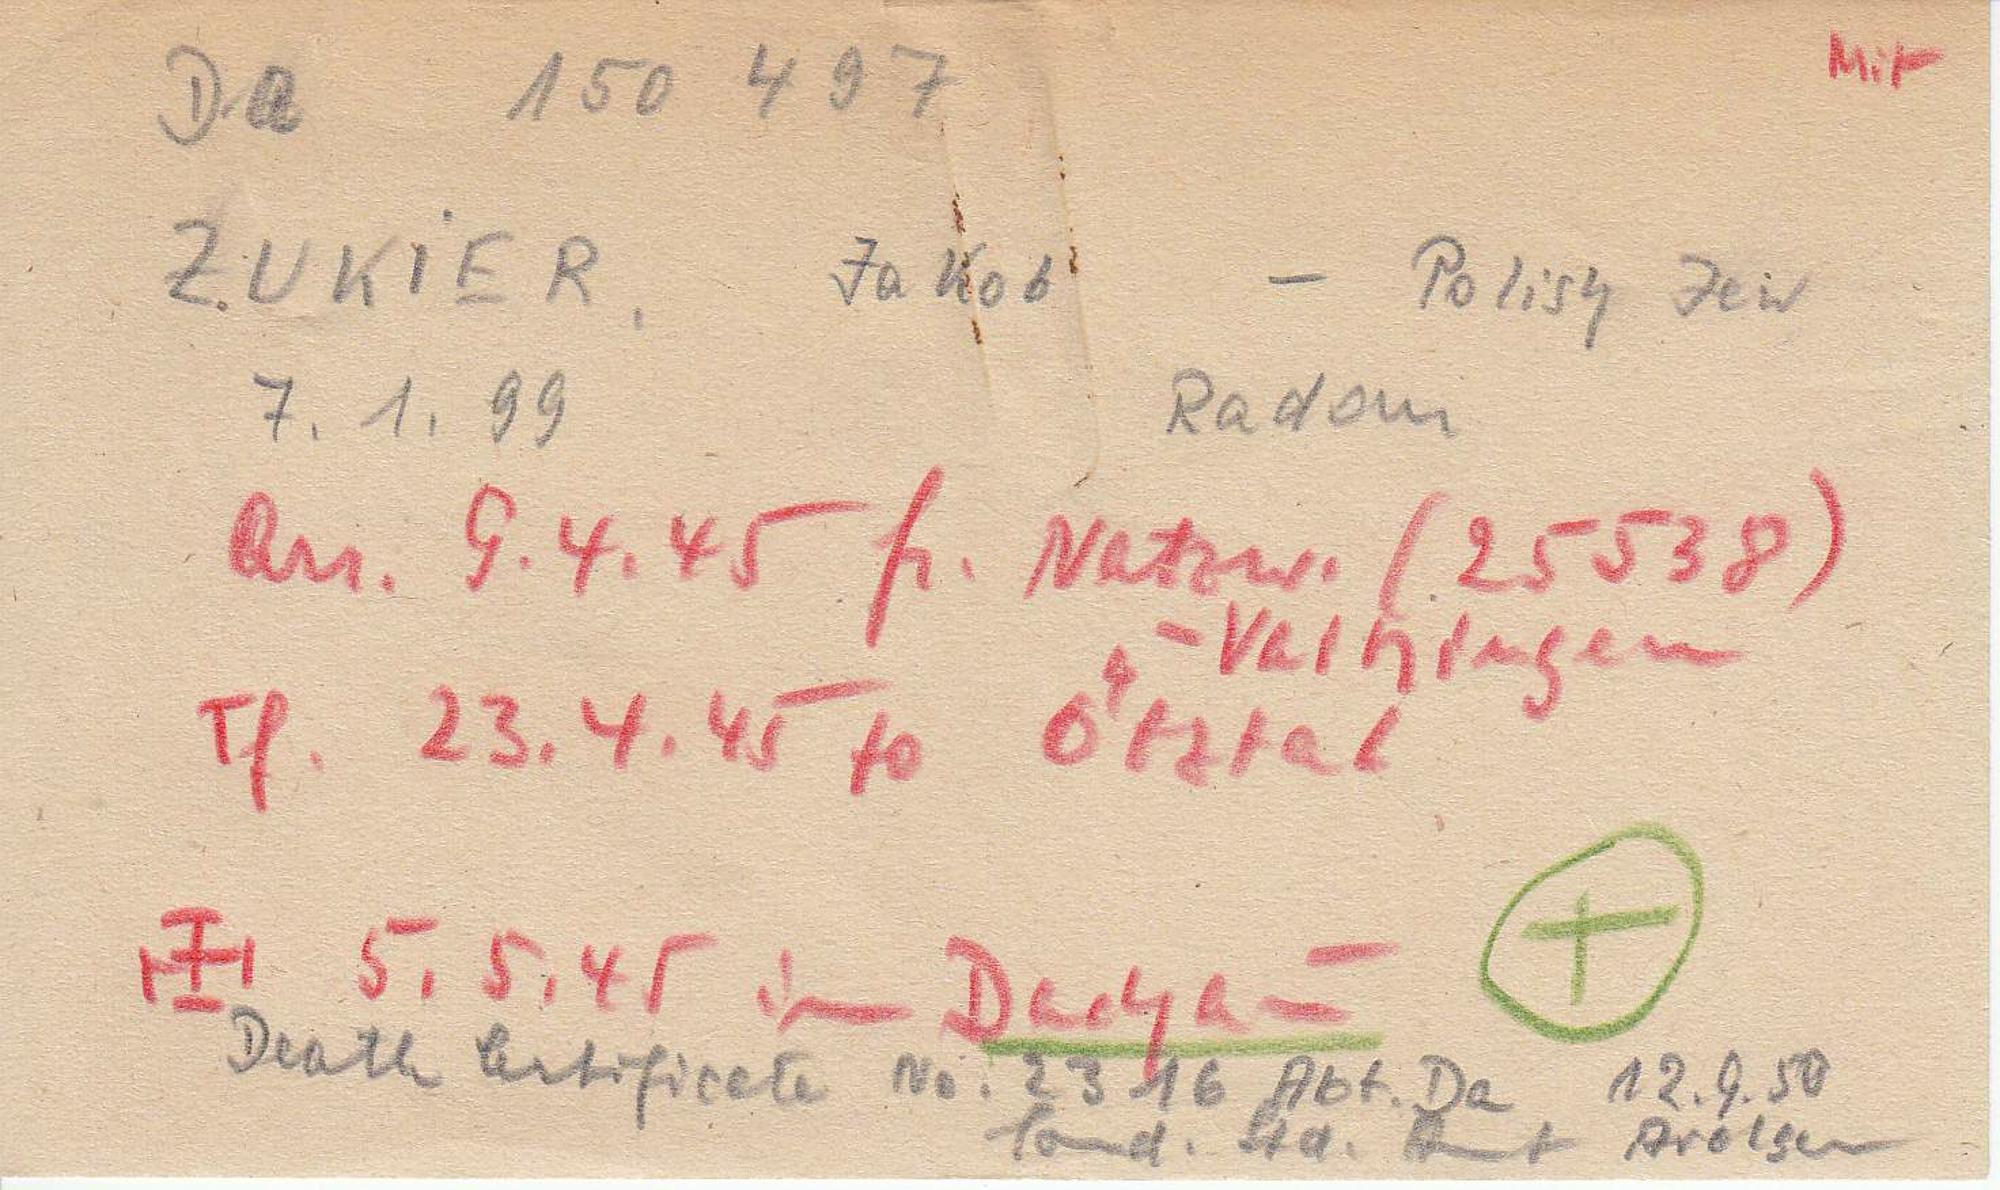 Da 150 497 Mit
ZUKIER, Jakob – Polish Jew
7. 1. 99 Radom
Arr. 9.4.45 fr. Natzw. (25538)
-Vaihingen
Tf. 23.4.45 to Ötztal
5.5.45 in Dachau
Death Certificate No. 2316 Abt. Da 12.9.50
Sond. Std. Amt Arolsen